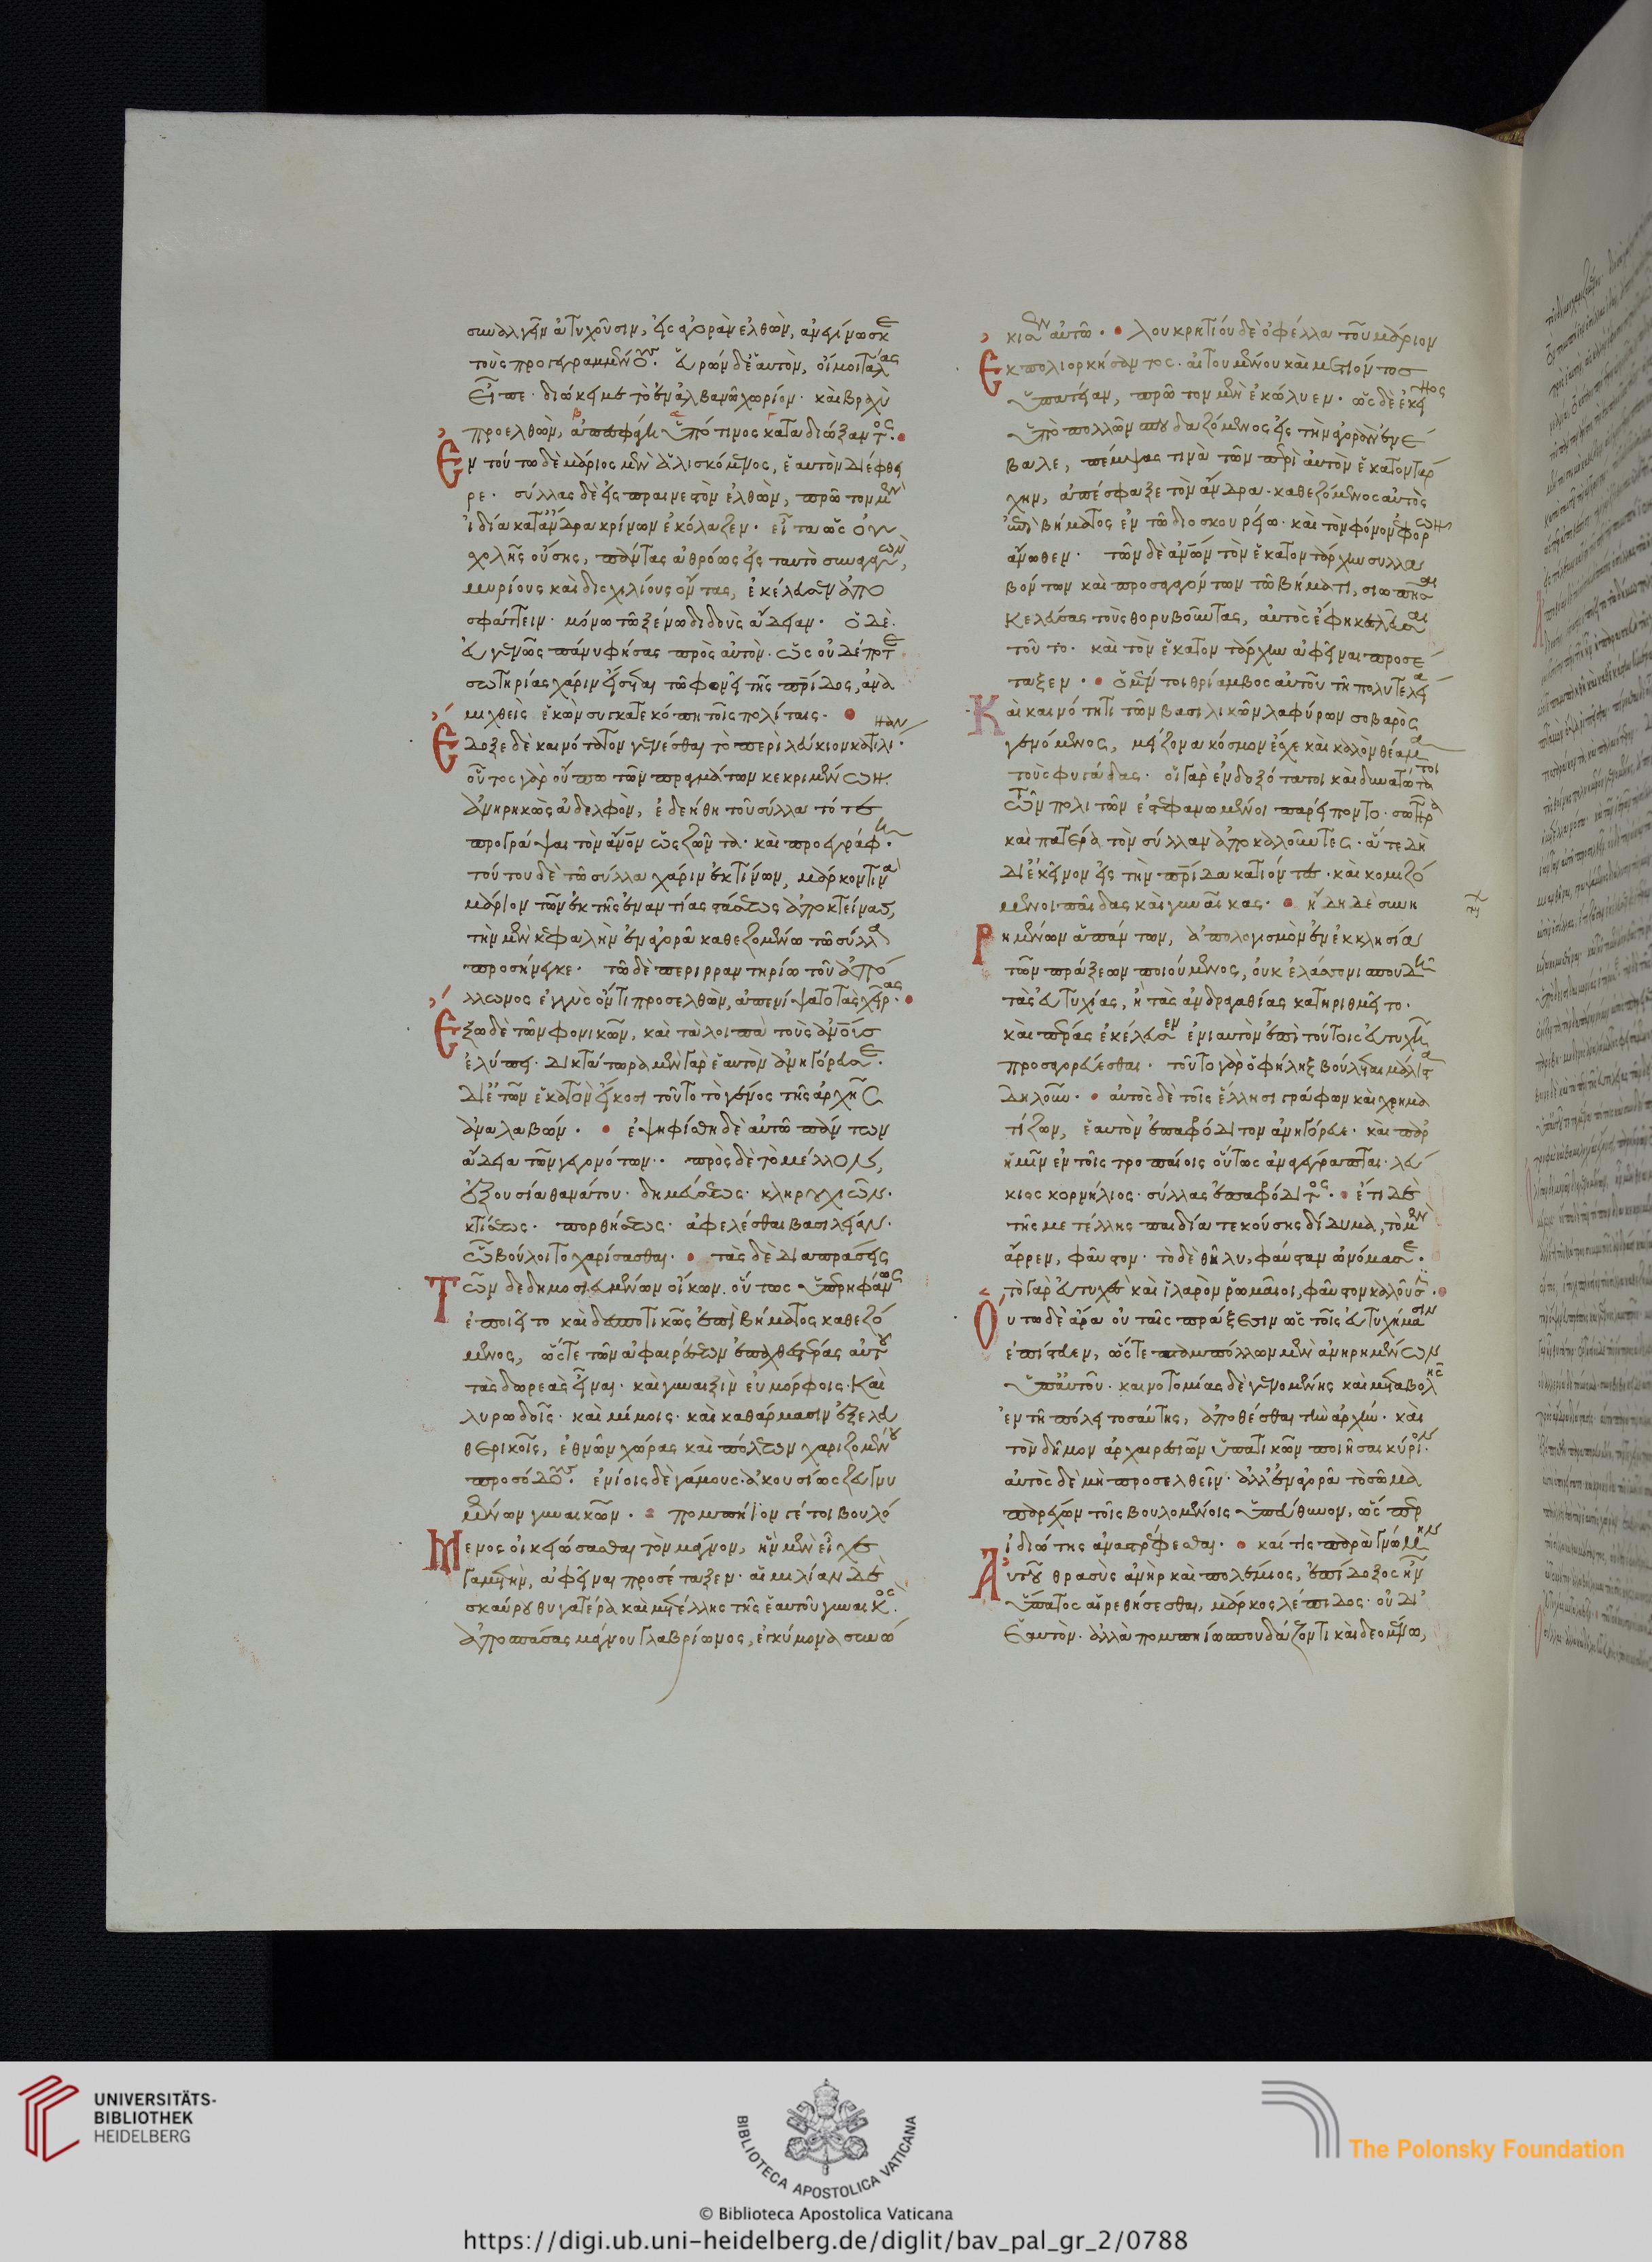 συναλγεῖν ἀτυχοῦσιν, εἰς ἀγορὰν ἐλθὼν, ἀνεγίνωσκε
τοὺς προγεγραμμένους. εὑρὼν δὲ ἑαυτὸν, οἴμοι τάλας
εἶπε· διώκει με τὸ ἐν ἀλβανῶ χωρίον· καὶ βραχὺ
προελθὼν, ἀπεσφάγη ὑπό τινος καταδιώξαντος.
Ἐν τούτω δὲ μάριος μὲν ἁλισκόμενος, ἑαυτὸν διέφθει
ρε. σύλλας δὲ εἰς πραινεστὸν ἐλθὼν, πρῶτον μὲν
ἰδία κατ' ἄνδρα κρίνων ἐκόλαζεν. εἶτα ὡς οὐ
σχολῆς οὔσης, πάντας ἀθρόως εἰς ταυτὸ συναγαγὼν,
μυρίους καὶ δισχιλίους ὄντας, ἐκέλευσεν ἀπο
σφάττειν· μόνω τῶ ξένω διδοὺς ἄδειαν. ὁ δὲ.
εὐγενῶς πάνυ φήσας πρὸς αὐτὸν. ὡς οὐδέποτε
σωτηρίας χάριν εἴσεται τῶ φονεῖ τῆς πατρίδος, ἀνα
μιχθεὶς ἑκὼν συγκατεκόπη τοῖς πολίταις.
Ἔδοξε δὲ καινότατον γενέσθαι τὸ περὶ λεύκιον κατιλίναν.
οὗτος γὰρ οὔπω τῶν πραγμάτων κεκριμένων
ἀνηρηκὼς ἀδελφὸν, ἐδεήθη τοῦ σύλλα τότε
προγράψαι τὸν ἄνθρωπον ὡς ζῶντα. καὶ προεγράφη.
τούτου δὲ τῶ σύλλα χάριν ἐκτίνων, μάρκον τινὰ
μάριον τῶν ἐκ τῆς ἐναντίας στάσεως ἀποκτείνας,
τὴν μὲν κεφαλὴν ἐν ἀγορᾶ καθεζομένω τῶ σύλλα
προσήνεγκε. τῶ δὲ περιρραντηρίω τοῦ ἀπό
λλωνος ἐγγὺς ὄντι προσελθὼν, ἀπενίψατο τὰς χεῖρας.
Ἔξω δὲ τῶν φονικῶν, καὶ τὰ λοιπὰ τοὺς ἀνθρώπους
ἐλύπει. δικτάτωρα μὲν γὰρ ἑαυτὸν ἀνηγόρευσε.
δι' ἐτῶν ἑκατὸν εἴκοσι τοῦτο τὸ γένος τῆς ἀρχῆς
ἀναλαβών. ἐψηφίσθη δὲ αὐτῶ πάντων
ἄδεια τῶν γεγονότων. πρὸς δὲ τὸ μέλλον,
ἐξουσία θανάτου. δημεύσεως. κληρουχιῶν.
κτίσεως. πορθήσεως. ἀφελέσθαι βασιλείαν.
ὧ βούλοιτο χαρίσασθαι. τὰς δὲ διαπράσεις
Τῶν δεδημοσιευμένων οἴκων. οὕτως ὑπερηφάνως
ἐποιεῖτο καὶ δεσποτικῶς ἐπὶ βήματος καθεζό
μενος, ὥστε τῶν ἀφαιρέσεων ἐπαχθεστέρας αὐτοῦ
τὰς δωρεὰς εἶναι. καὶ γυναιξὶν εὐμόρφοις. καὶ
λυρωδοῖς. καὶ μίμοις. καὶ καθάρμασιν ἐξελευ
θερικοῖς, ἐθνῶν χώρας καὶ πόλεων χαριζομένου
προσόδους. ἐνίοις δὲ γάμους ἀκουσίως ζευγνυ
μένων γυναικῶν. πομπήϊόν γέ τοι βουλό
Μενος οἰκειώσασθαι τὸν μάγνον, ἣν μὲν εἶχε
γαμετὴν, ἀφεῖναι προσέταξεν. αἰμιλίαν δὲ
σκαύρου θυγατέρα καὶ μετέλλης τῆς ἑαυτοῦ γυναικός.
ἀποσπάσας μάγνου γλαβρίωνος, ἐγκύμονα συνώ
κισεν αὐτῶ. λουκρητίου δὲ ὀφέλλα τοῦ μάριον
Ἐκπολιορκήσαντος. αἰτουμένου καὶ μετιόντος
ὑπατείαν, πρῶτον μὲν ἐκώλυεν. ὡς δὲ ἐκεῖνος
ὑπὸ πολλῶν σπουδαζόμενος εἰς τὴν ἀγορὰν ἐνέ
βαλε, πέμψας τινὰ τῶν περὶ αὐτὸν ἑκατοντάρ
χην, ἀπέσφαξε τὸν ἄνδρα. καθεζόμενος αὐτὸς
ἐπὶ βήματος ἐν τῶ διοσκουρείω. καὶ τὸν φόνον ἐφορῶν
ἄνωθεν. τῶν δὲ ἀνθρώπων τὸν ἑκατοντάρχην συλλα
βόντων καὶ προσαγαγόντων τῶ βήματι, σιωπῆσαι
κελεύσας τοὺς θορυβοῦντας, αὐτὸς ἔφη κελεῦσαι
τοῦτο. καὶ τὸν ἑκατοντάρχην ἀφεῖναι προσέ
ταξεν. ὁ μέντοι θρίαμβος αὐτοῦ τῆ πολυτελεία
Καὶ καινότητι τῶν βασιλικῶν λαφύρων σοβαρὸς
γενόμενος, μείζονα κόσμον ἔσχε καὶ καλὸν θέαμα
τοὺς φυγάδας. οἱ γὰρ ἐνδοξότατοι καὶ δυνατώτατοι
τῶν πολιτῶν ἐστεφανωμένοι παρείποντο. σωτῆρα
καὶ πατέρα τὸν σύλλαν ἀποκαλοῦντες. ἅτε δὴ
δι' ἐκεῖνον εἰς τὴν πατρίδα κατιόντες. καὶ κομιζό
μενοι παῖδας καὶ γυναῖκας. ἤδη δὲ συνη
Ρημένων ἁπάντων, ἀπολογισμὸν ἐν ἐκκλησία
τῶν πράξεων ποιούμενος, οὐκ ἐλάσσονι σπουδῆ
τὰς εὐτυχίας, ἢ τὰς ἀνδραγαθίας κατηριθμεῖτο.
καὶ πέρας ἐκέλευσεν ἑνιαυτὸν ἐπὶ τούτοις εὐτυχῆ
προσαγορεύεσθαι. τοῦτο γὰρ ὁ φήλιξ βούλεται μάλιστα
δηλοῦν. αὐτὸς δὲ τοῖς ἕλλησι γράφων καὶ χρημα
τίζων, ἑαυτὸν ἐπαφρόδιτον ἀνηγόρευε. καὶ παρ'
ἡμῖν ἐν τοῖς τροπαίοις οὕτως ἀναγέγραπται. λεύ
κιος κορνήλιος. σύλλας ἐπαφρόδιτος. ἔτι δὲ
τῆς μετέλλης παιδία τεκούσης δίδυμα, τὸ μὲν
ἄρρεν, φαῦστον. τὸ δὲ θῆλυ, φαύσταν ὠνόμασε.
τὸ γὰρ εὐτυχὲς καὶ ἱλαρὸν ῥωμαῖοι, φαῦστον καλοῦσι.
Οὕτω δὲ ἄρα οὐ ταῖς πράξεσιν ὡς τοῖς εὐτυχήμασιν
ἐπίστευεν, ὥστε παμπόλλων μὲν ἀνηρημένων
ὑπ' αὐτοῦ. καινοτομίας δὲ γενομένης καὶ μεταβολῆς
ἐν τῆ πόλει τοσαύτης, ἀποθέσθαι τὴν ἀρχήν. καὶ
τὸν δῆμον ἀρχαιρεσιῶν ὑπατικῶν ποιῆσαι κύριον.
αὐτὸς δὲ μὴ προσελθεῖν. ἀλλ' ἐν ἀγορᾶ τὸ σῶμα
παρέχων τοῖς βουλομένοις ὑπεύθυνον, ὥσπερ
ἰδιώτης ἀναστρέφεσθαι. καί τις παρὰ γνώμην
Αὐτοῦ θρασὺς ἀνὴρ καὶ πολέμιος, ἐπίδοξος ἦν
ὕπατος αἱρεθήσεσθαι, μάρκος λέπιδος. οὐ δι'
ἑαυτὸν. ἀλλὰ πομπηίω σπουδάζοντι καὶ δεομένω,
UNIVERSITÄTS-
BIBLIOTHEK
HEIDELBERG
BIBLIOTECA APOSTOLICA VATICANA
The Polonsky Foundation
© Biblioteca Apostolica Vaticana
https://digi.ub.uni-heidelberg.de/diglit/bav_pal_gr_2/0788